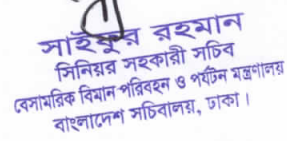 সাইফুর রহমান
সিনিয়র সহকারী সচিব
বেসামরিক বিমান পরিবহন ও পর্যটন মন্ত্রণালয়
বাংলাদেশ সচিবালয়, ঢাকা।